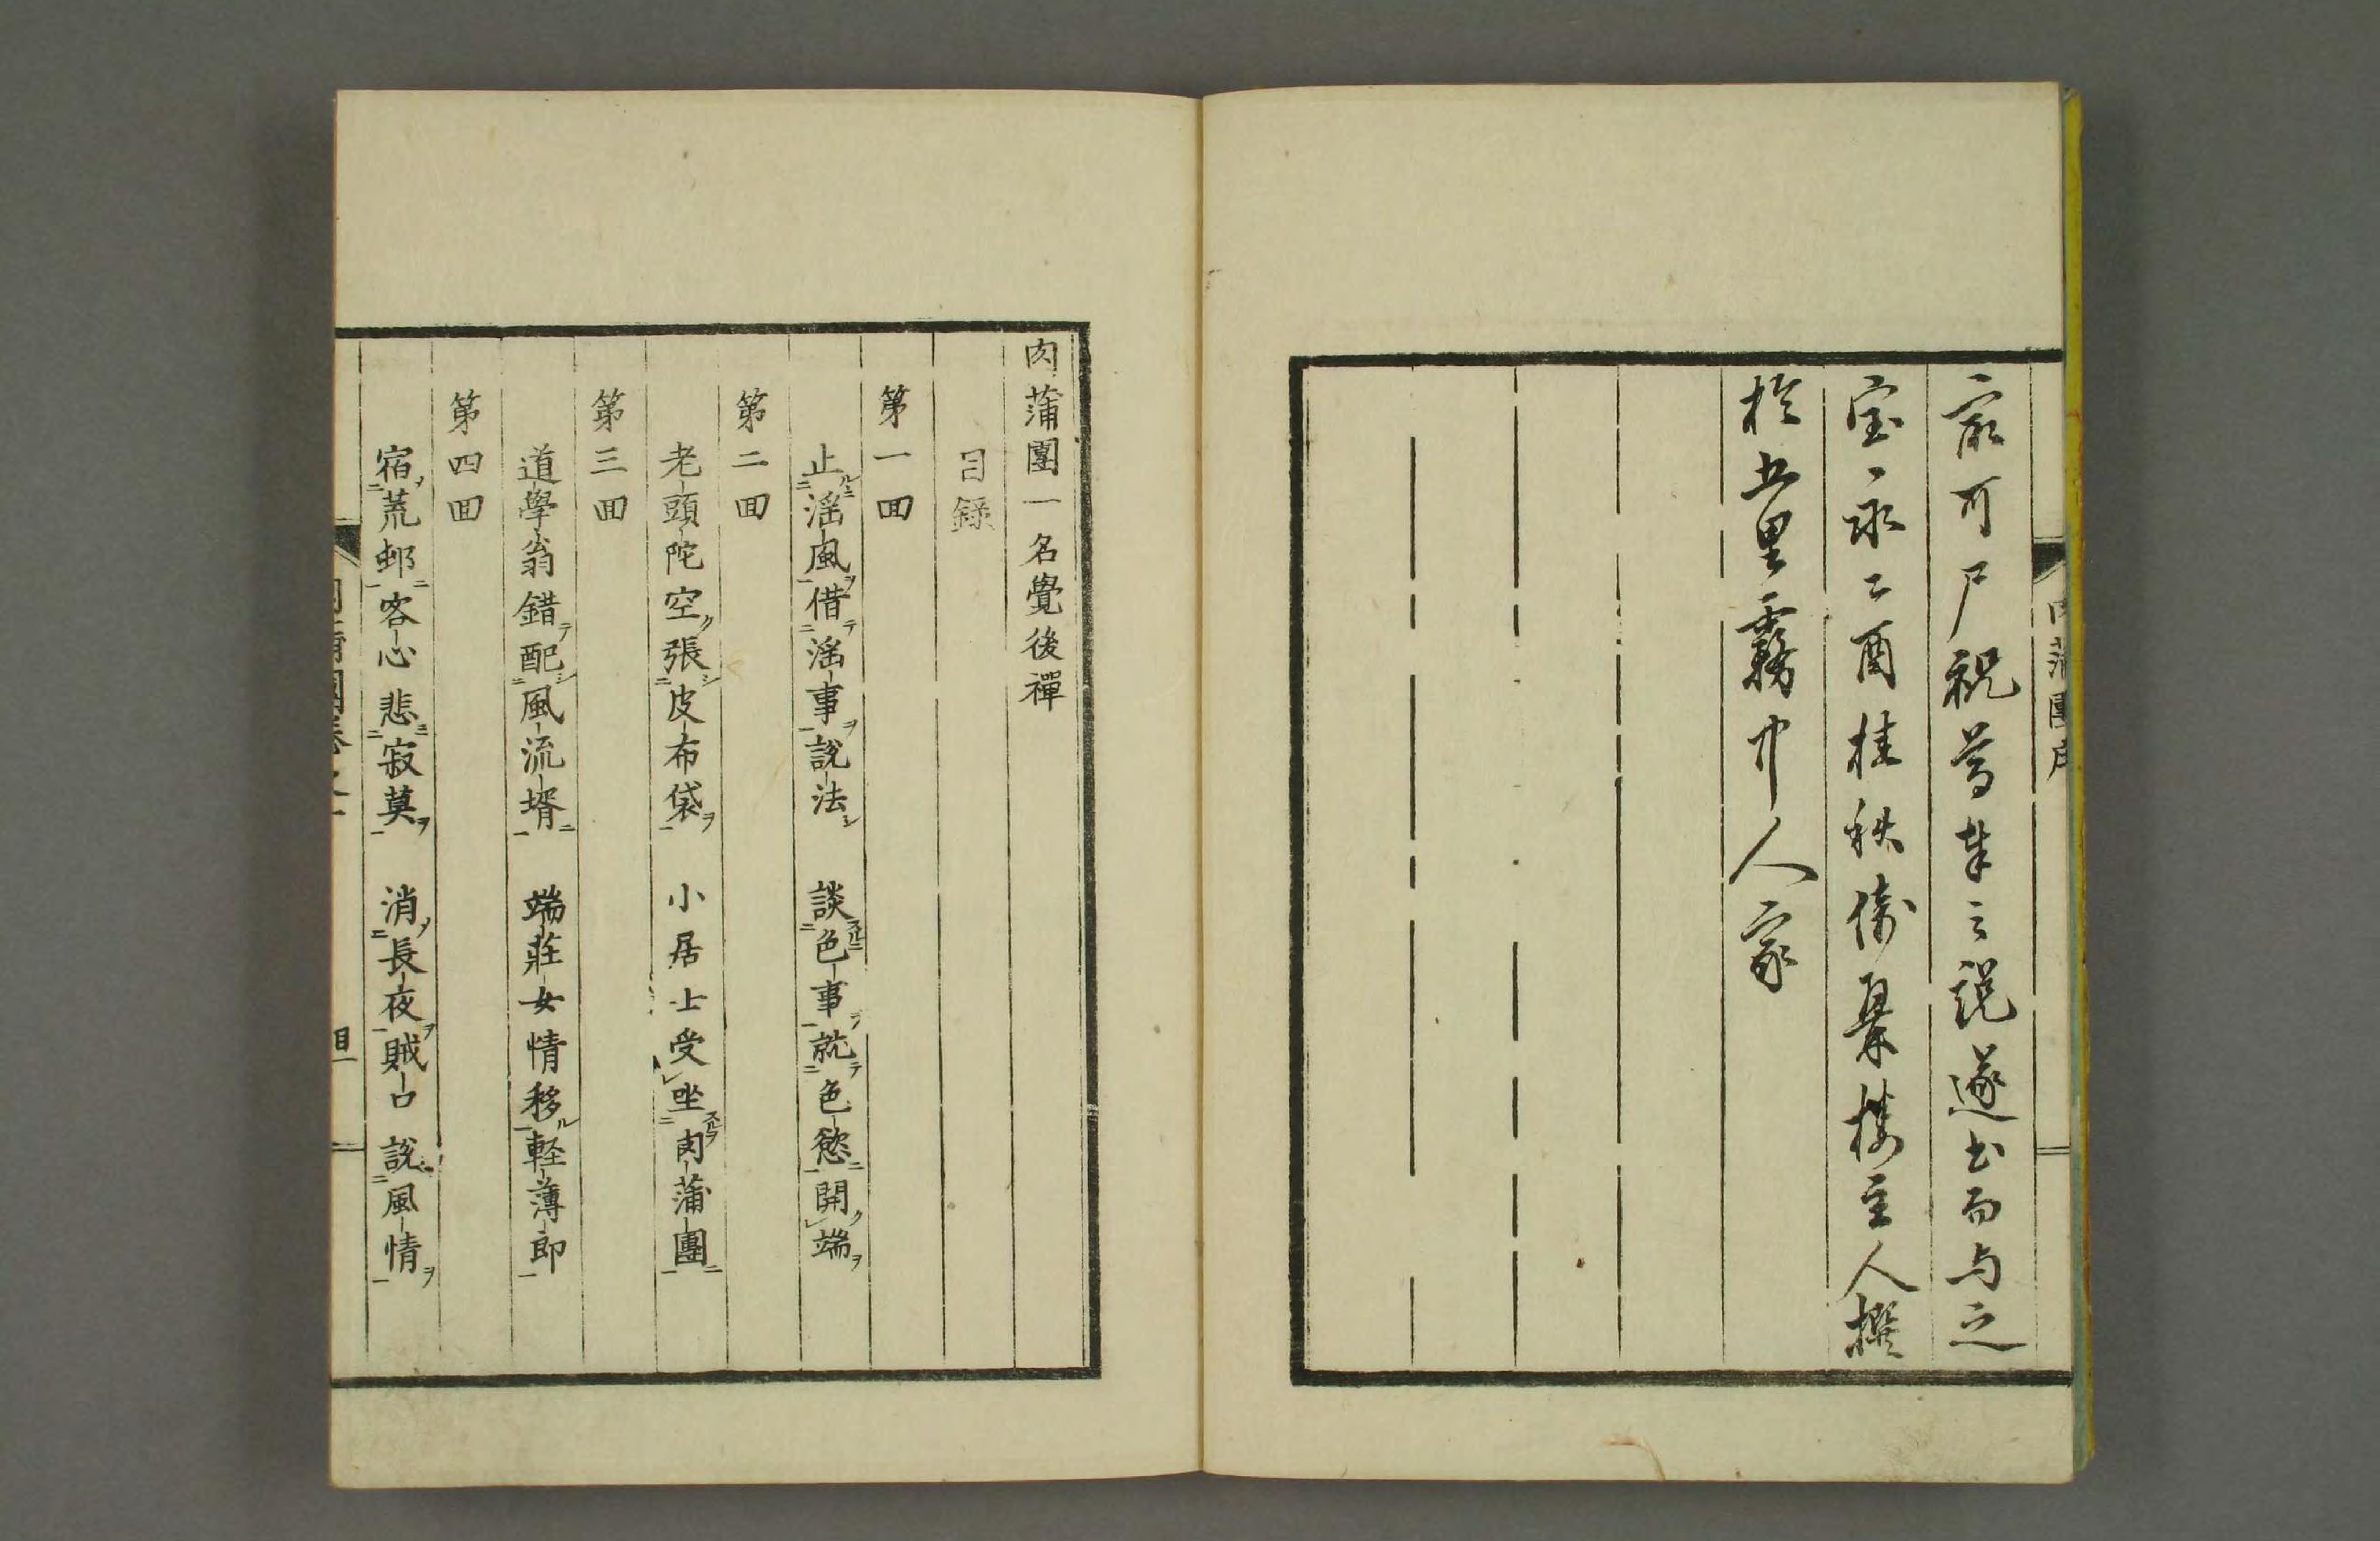 肉蒲團序
宝永乙酉桂秋倚翠楼主人撰
於五里霧中人家
肉蒲團一名覺後禪
目錄
第一囬
止淫風借淫事說法　談色事就色慾開端
第二囬
老頭陀空張皮布袋　小居士受坐肉蒲團
第三囬
道學翁錯配風流壻　端莊女情移輕薄郎
第四囬
宿荒郵客心悲寂莫　消長夜賊口說風情
肉蒲團卷之一
目一